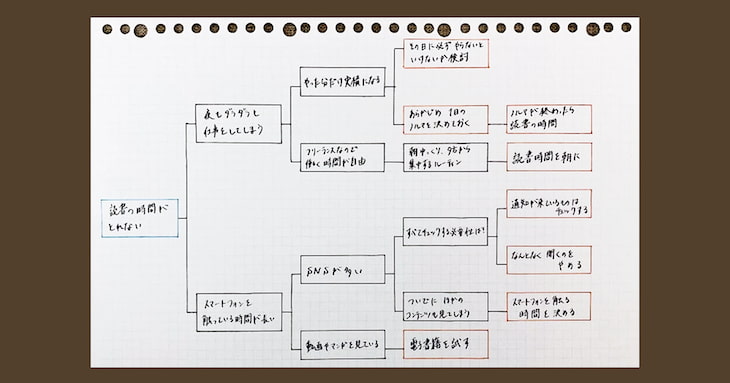 読書の時間が
とれない
夜もダラダラと
仕事をしてしまう
スマートフォンを
触っている時間が長い
やった分だけ実績になる
フリーランスなので
働く時間が自由
SNSが多い
動画やマンガを見ている
その日に必ずやらないと
いけないか検討
あらかじめ1日の
ノルマを決めておく
朝ゆっくり、夕方から
集中するルーティン
すべてチェックする必要性は?
ついでにほかの
コンテンツも見てしまう
電子書籍を試す
ノルマが終わったら
読書の時間
読書時間を朝に
通知が来ているものは
チェックする
なんとなく開くのを
やめる
スマートフォンを触る
時間を決める